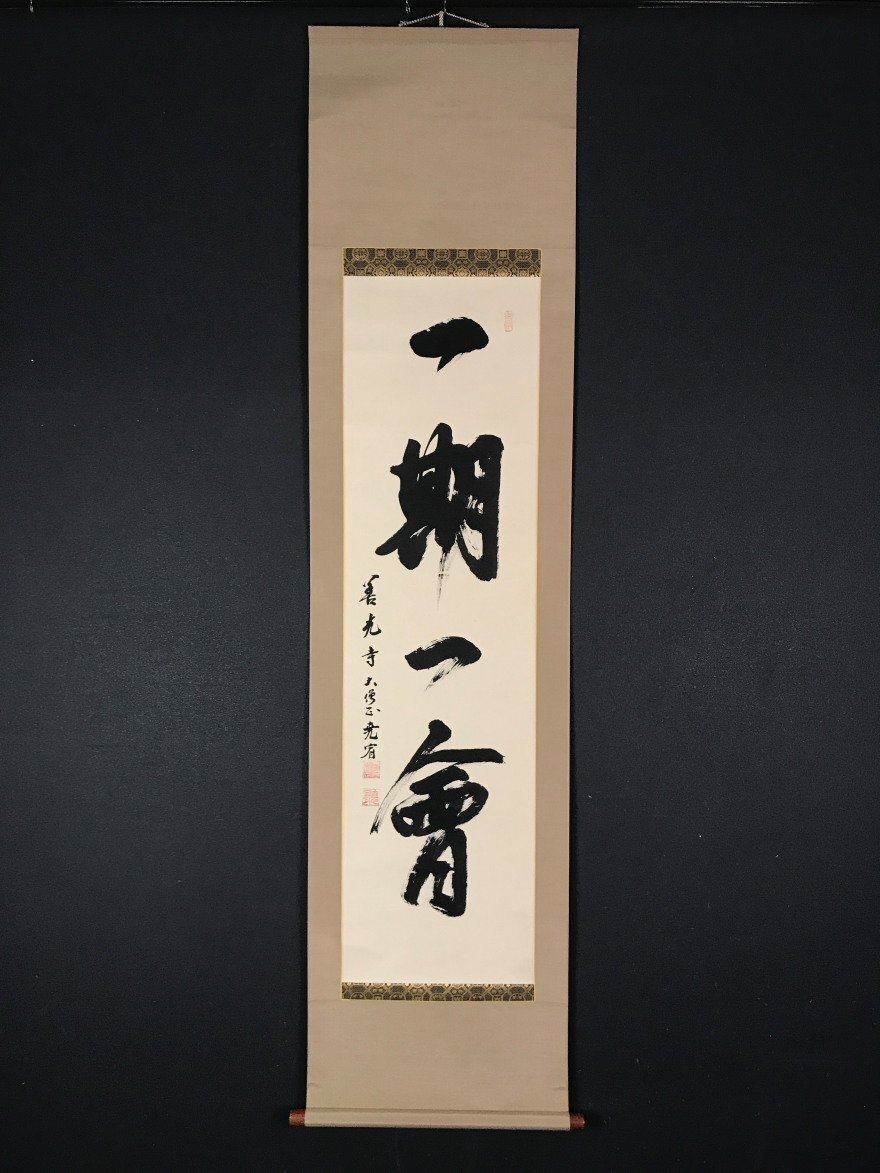 一期一會
善光寺 大僧正堯宥